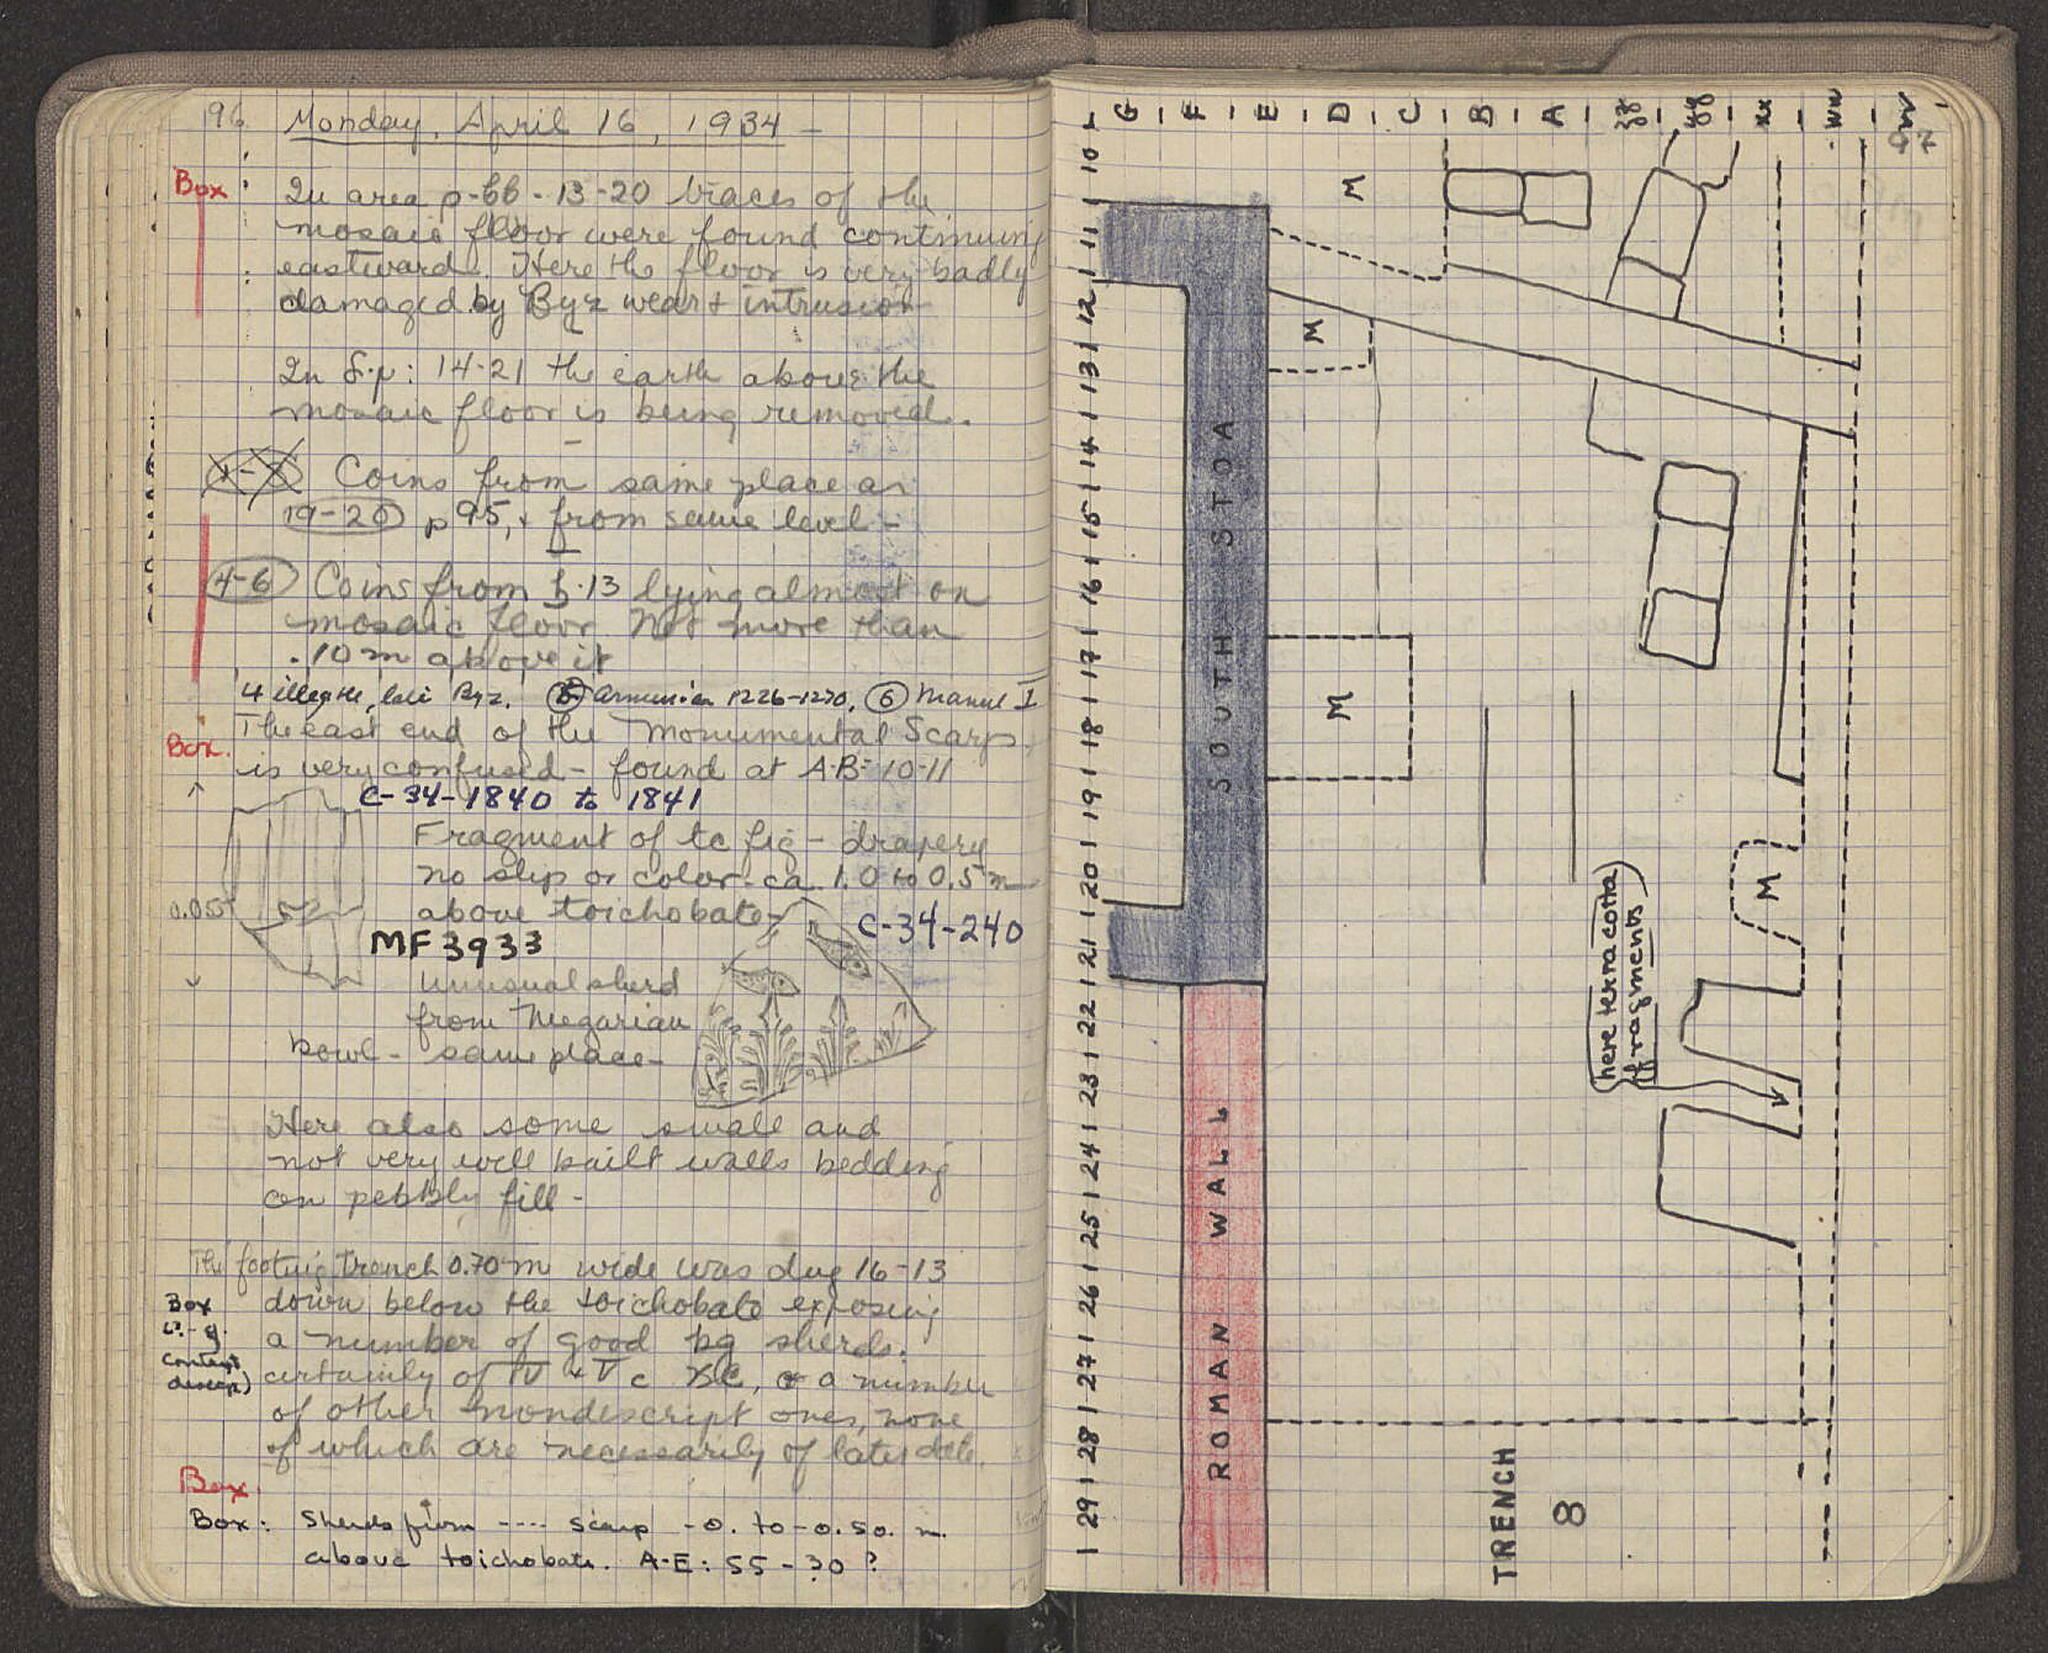 96 Monday, April 16, 1934 -
Box: In area p-bb - 13-20 traces of the
mosaic floor were found continuing
eastward. Here the floor is very badly
damaged by Byz wear + intrusion
In S-p: 14-21 the earth above the
mosaic floor is being removed.
Coins from same place as
19-20 p 95, + from same level -
4-6 Coins from 13 lying almost on
mosaic floor Not more than
.10 m above it
4 illegible, late Byz. 5 Armenian 1226-1270, 6 Manuel I
The east end of the Monumental Scarp
Box. is very confused - found at A-B: 10-11
C-34-1840 to 1841
Fragment of tc fig - drapery
no slip or color - ca. 1.0 to 0.5 m
0.055 above toichobate
C-34-240
MF 3933
unusual sherd
from Megarian
bowl - same place -
Here also some small and
not very well built walls bedding
on pebbly fill -
The footing trench 0.70 m wide was dug 16-13
Box down below the toichobate exposing
a number of good bg sherds.
context certainly of IV + V c BC, + a number
descrip) of other nondescript ones, none
of which are necessarily of later date.
Box.
Box: Sherds from ---- scarp - 0. to - 0.50. m.
above toichobate. A-E: 55 - 30 ?
97
G F E D C B A zz yy xx ww vv
10 11 12 13 14 15 16 17 18 19 20 21 22 23 24 25 26 27 28 29
M
M
M
M
SOUTH STOA
ROMAN WALL
here terra cotta
fragments
TRENCH
8